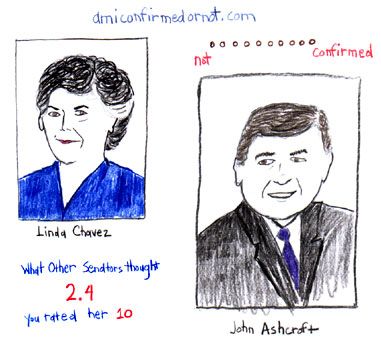 amiconfirmedornot.com
not
confirmed
Linda Chavez
What Other Senators thought
2.4
you rated her 10
John Ashcroft